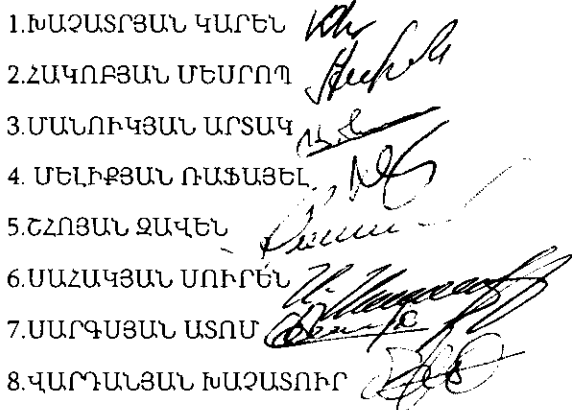 1.ԽԱՉԱՏՐՅԱՆ ԿԱՐԵՆ
2.ՀԱԿՈԲՅԱՆ ՄԵՍՐՈՊ
3.ՄԱՆՈՒԿՅԱՆ ԱՐՏԱԿ
4. ՄԵԼԻՔՅԱՆ ՌԱՖԱՅԵԼ
5.ՇՀՈՅԱՆ ԶԱՎԵՆ
6.ՍԱՀԱԿՅԱՆ ՍՈՒՐԵՆ
7.ՍԱՐԳՍՅԱՆ ԱՏՈՄ
8.ՎԱՐԴԱՆՅԱՆ ԽԱՉԱՏՈՒՐ